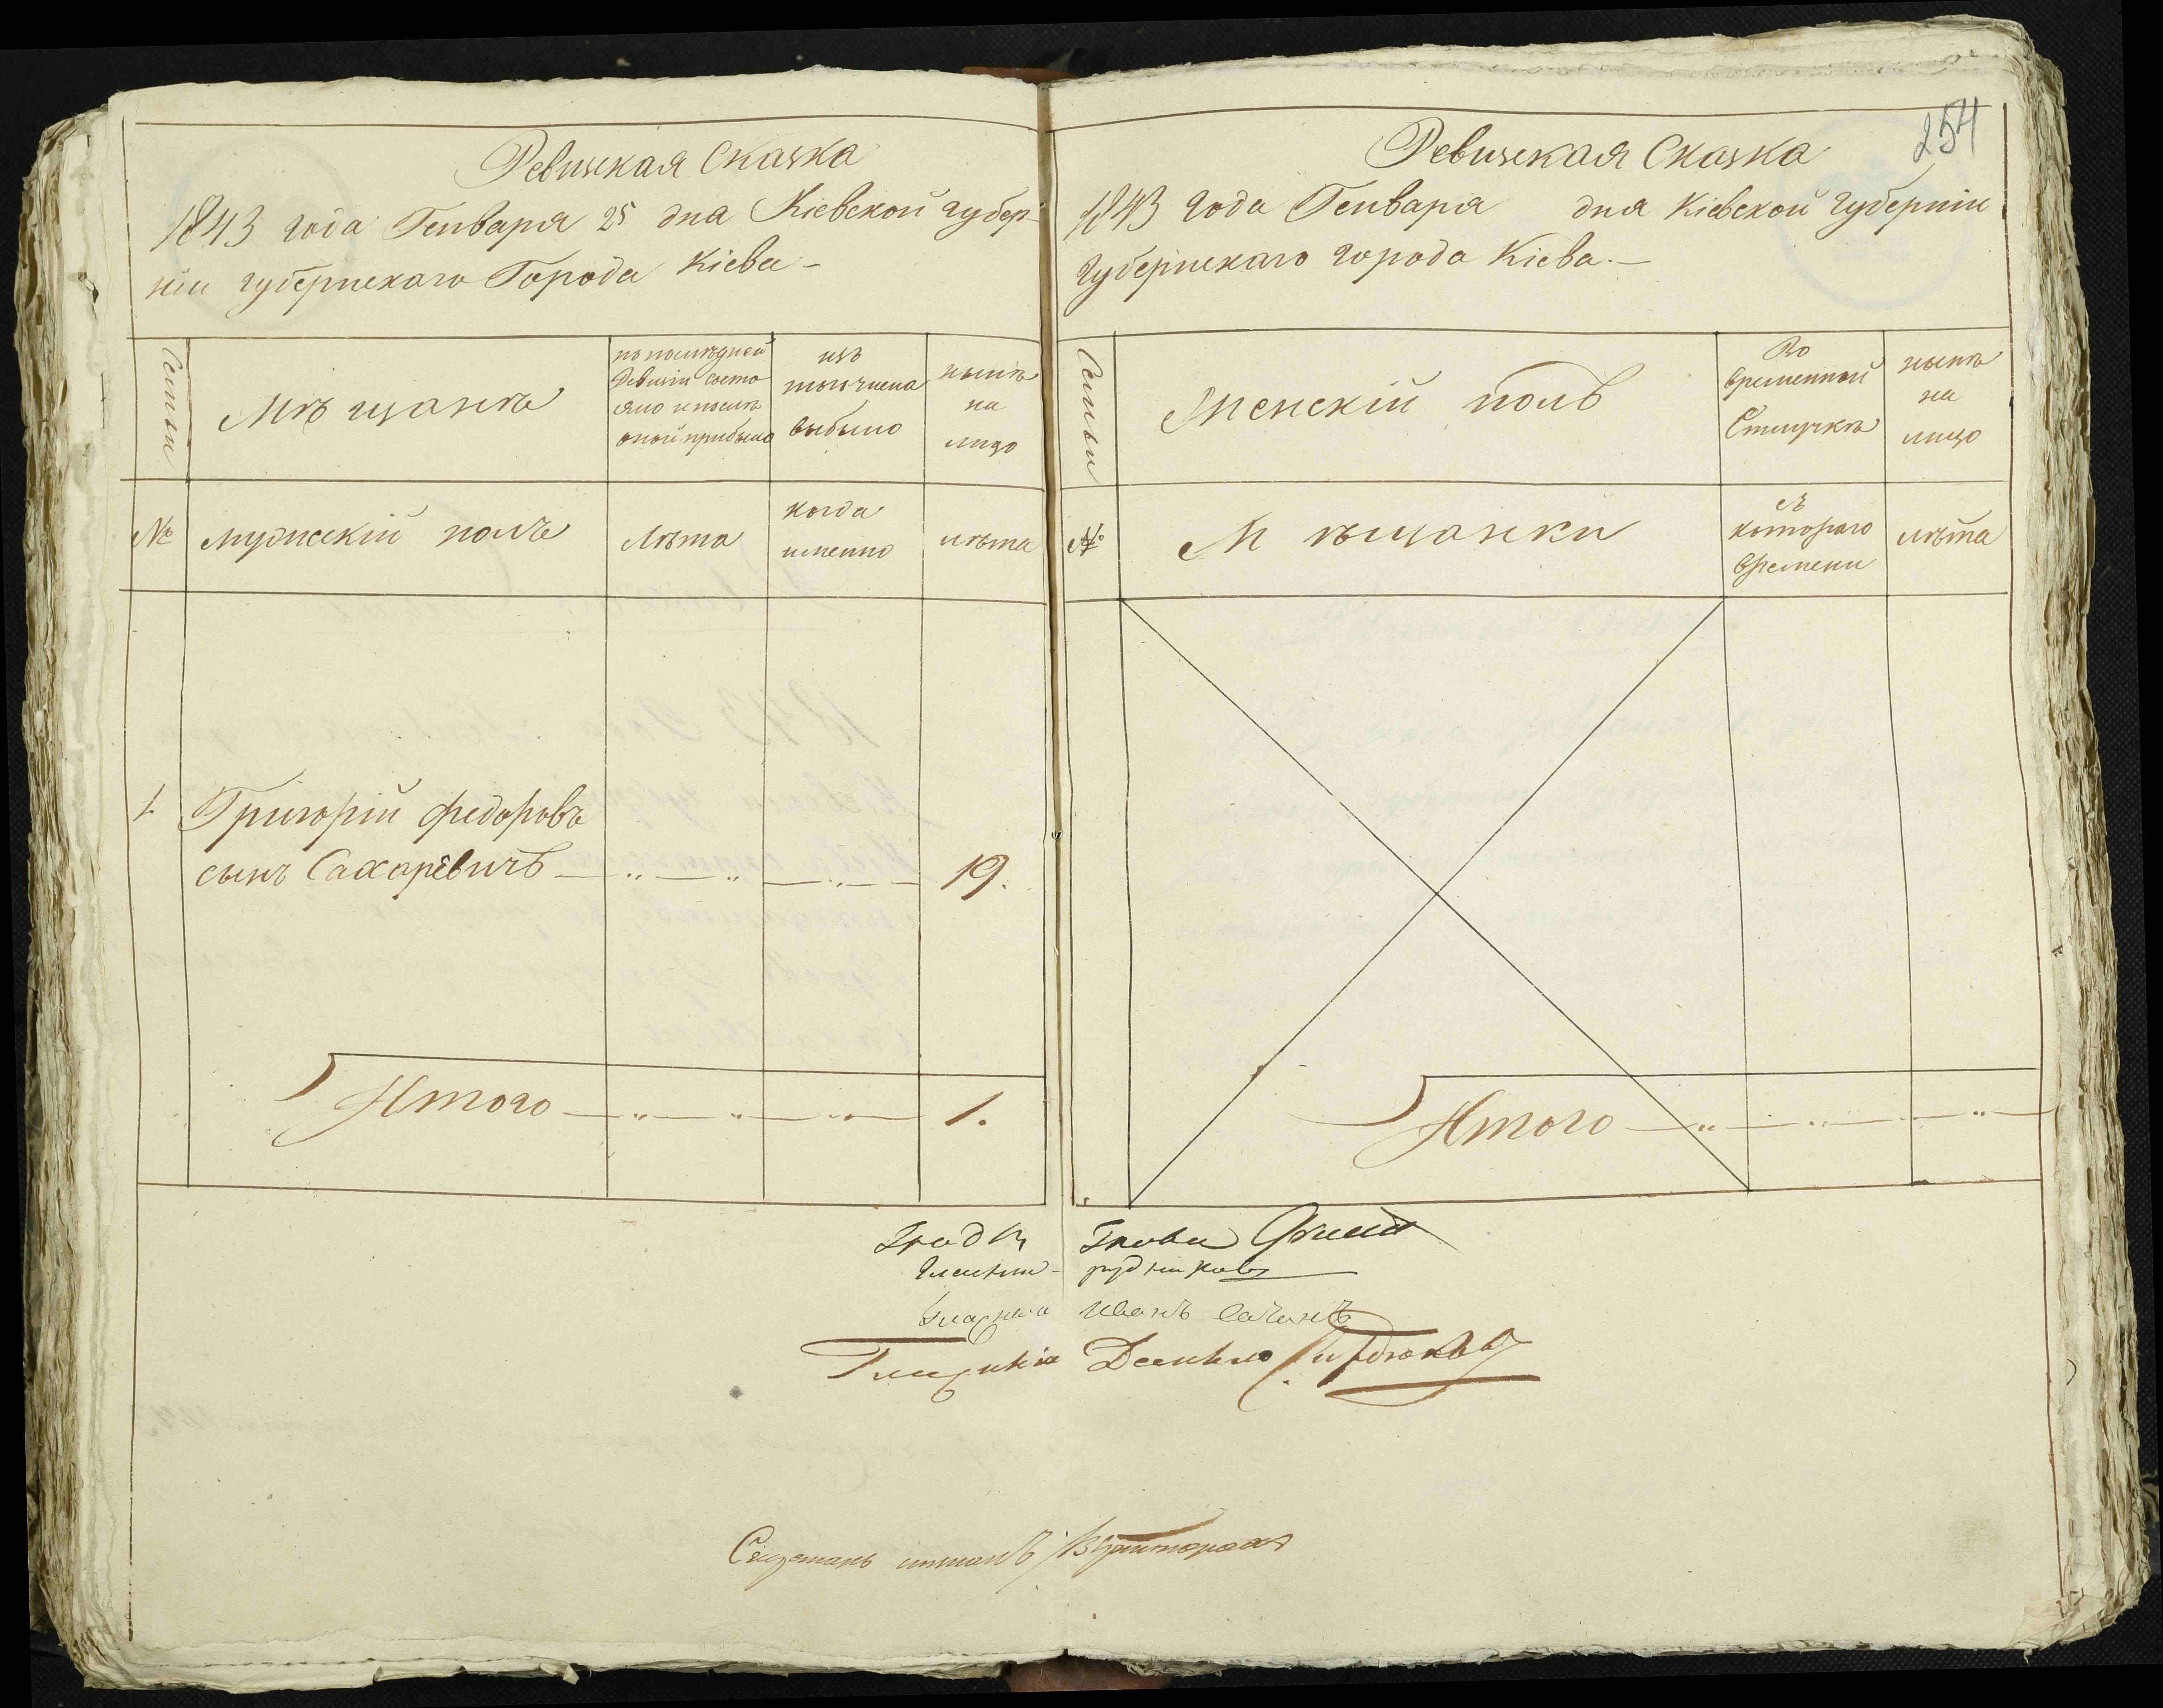 Ревизская Сказка
1843 года Генваря 25 дня Кіевской губер-
ніи губернскаго Города Кіева -
Семьи
Мѣщанъ
по послѣдней
Ревизіи состо
яло и послѣ
оной прибыло
изъ
того числа
выбыло
нынѣ
на
лицо
№
мужескій полъ
Лѣта
когда
именно
лѣта
1.
Григорій Федоровъ
сынъ Сахаревичъ — " — " — " — 19.
Итого — " — " — " — 1.
254
Ревизская Сказка
1843 года Генваря дня Кіевской Губерніи
Губернскаго города Кіева. —
Семьи
Женскій полъ
Во
временной
Отлучкѣ
нынѣ
на
лицо
№
Мѣщанки
съ
котораго
времени
лѣта
Итого — " — " — " —
Градск Глова
Гласный
Гласный Иванъ
Гласний Демьянъ